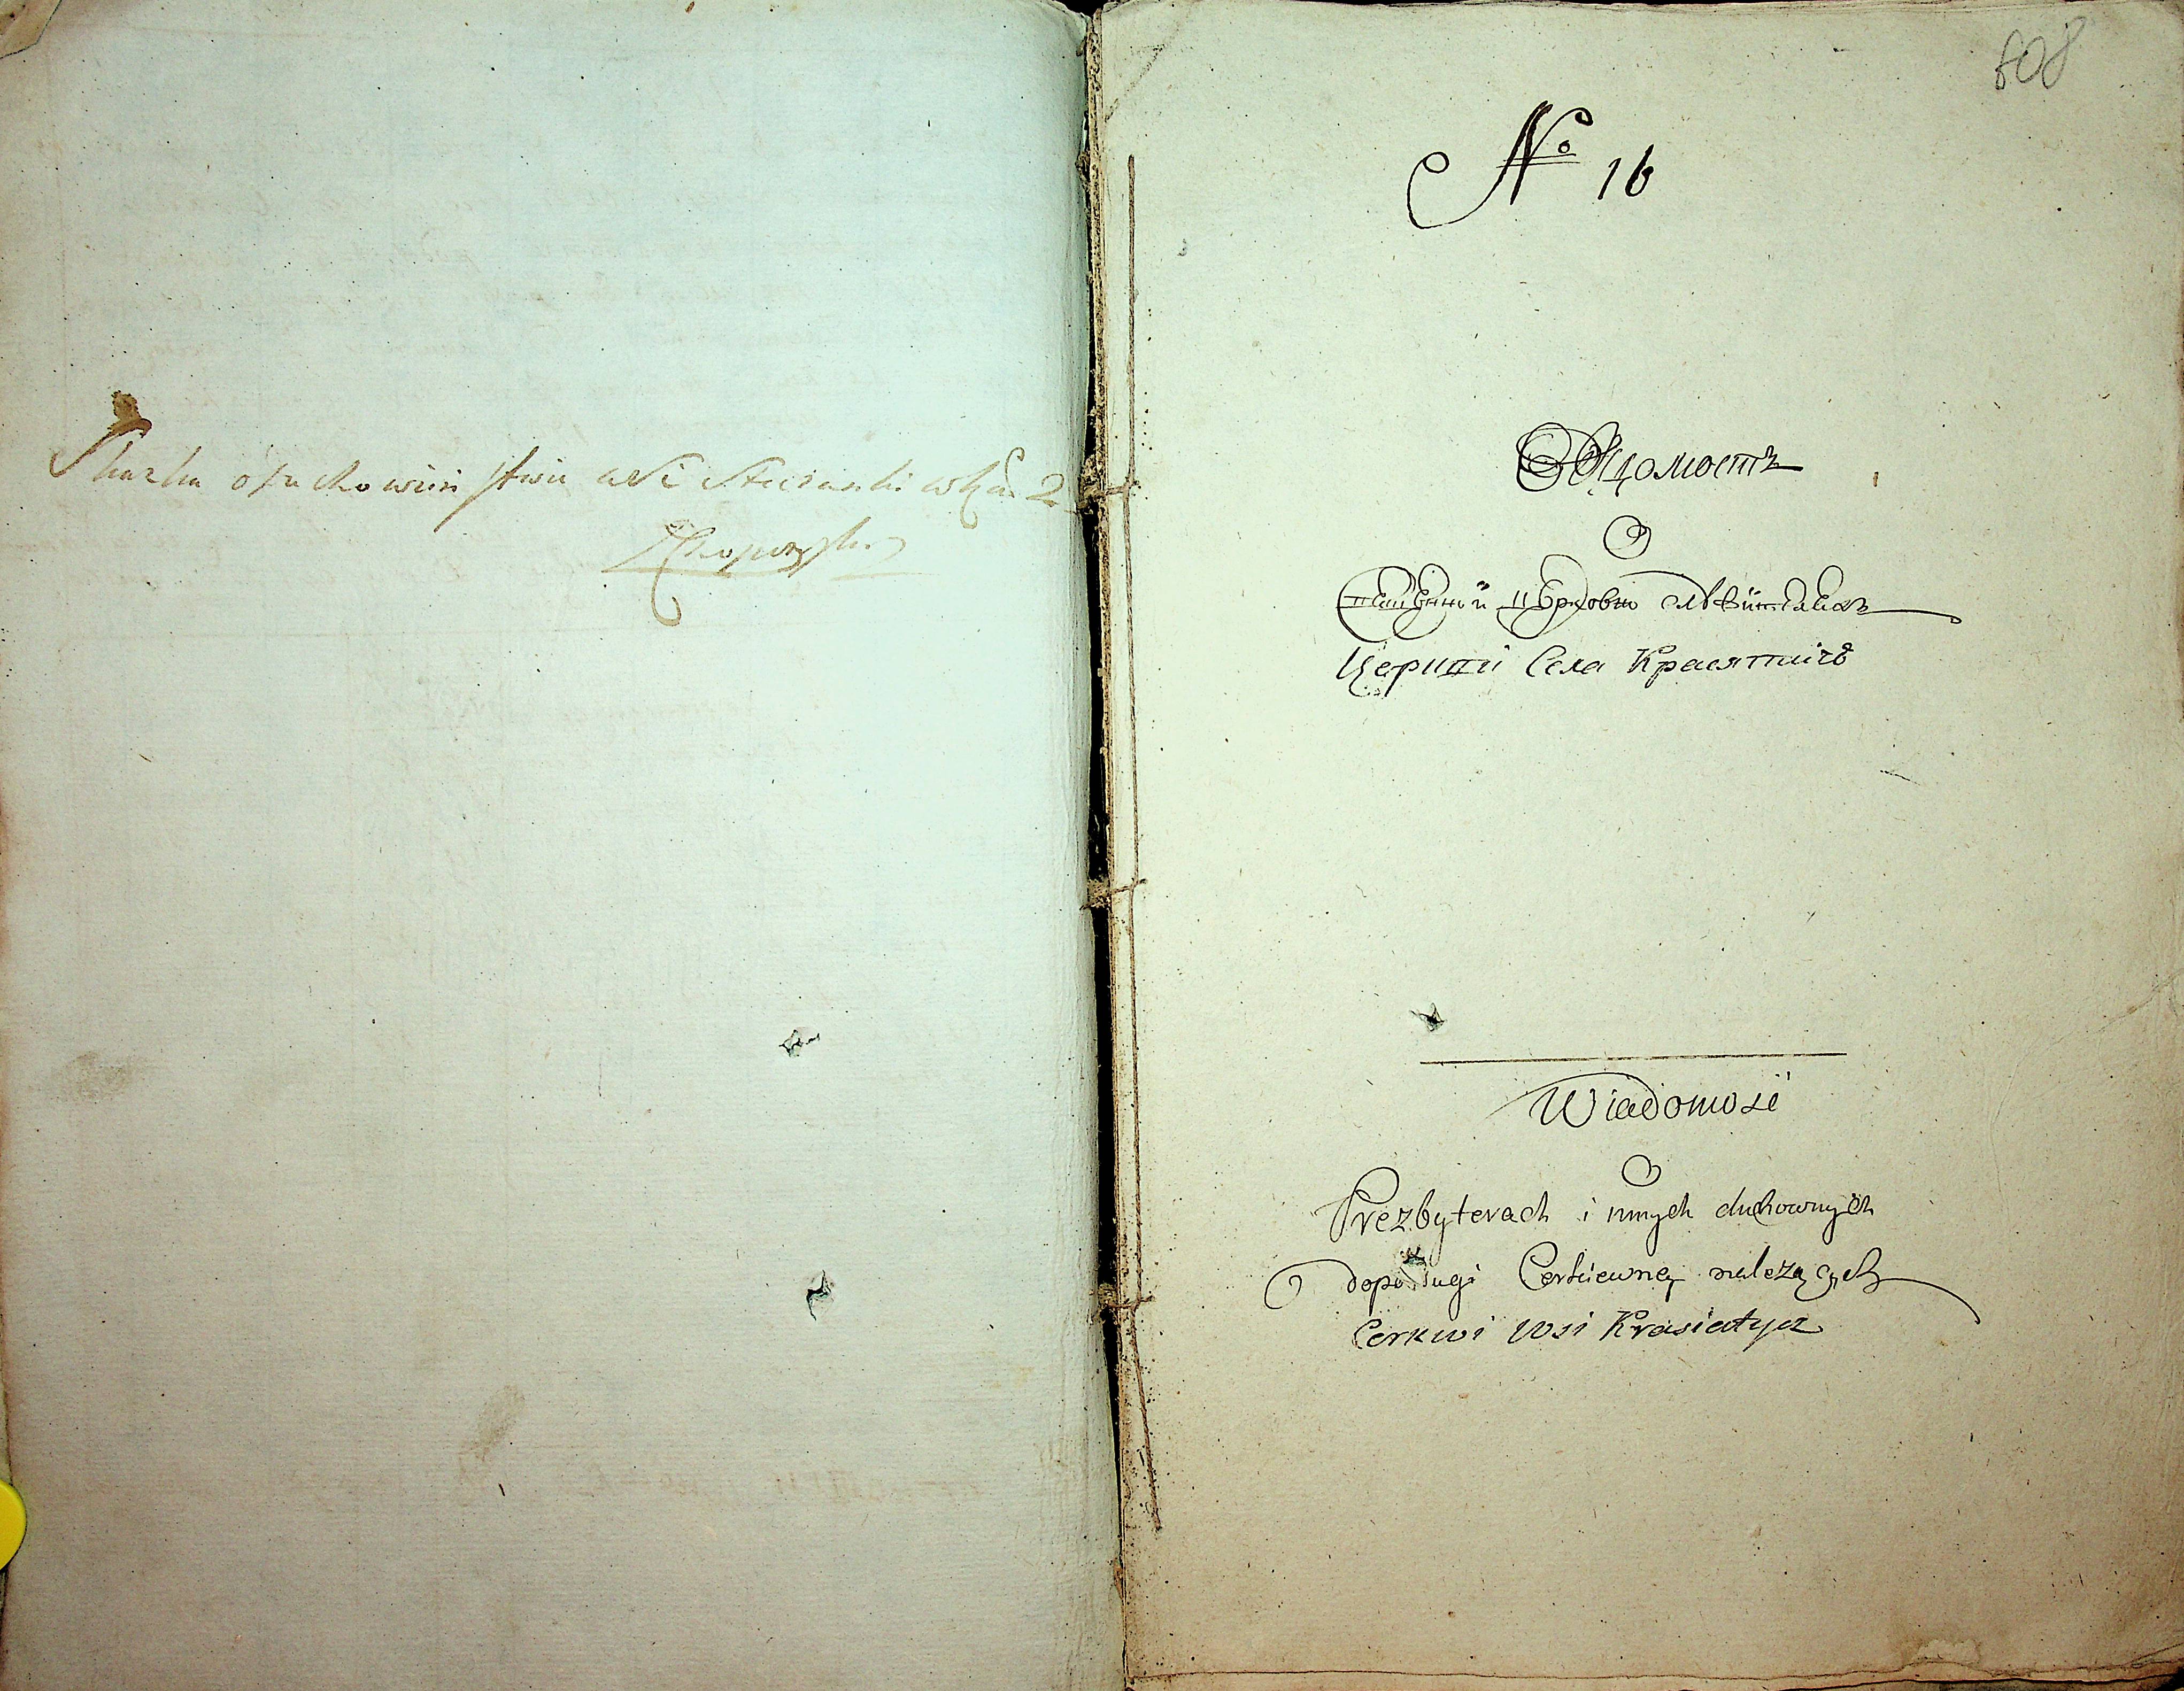 Skazka o duchowieństwie wsi
2
608
No 16
Вѣдомость
О
священно и церковно служителяхъ
Церкви Села Красятичъ
Wiadomość
O
Prezbyterach i innych duchownych
do posługi Cerkiewney należących
Cerkwi wsi Krasiatycz